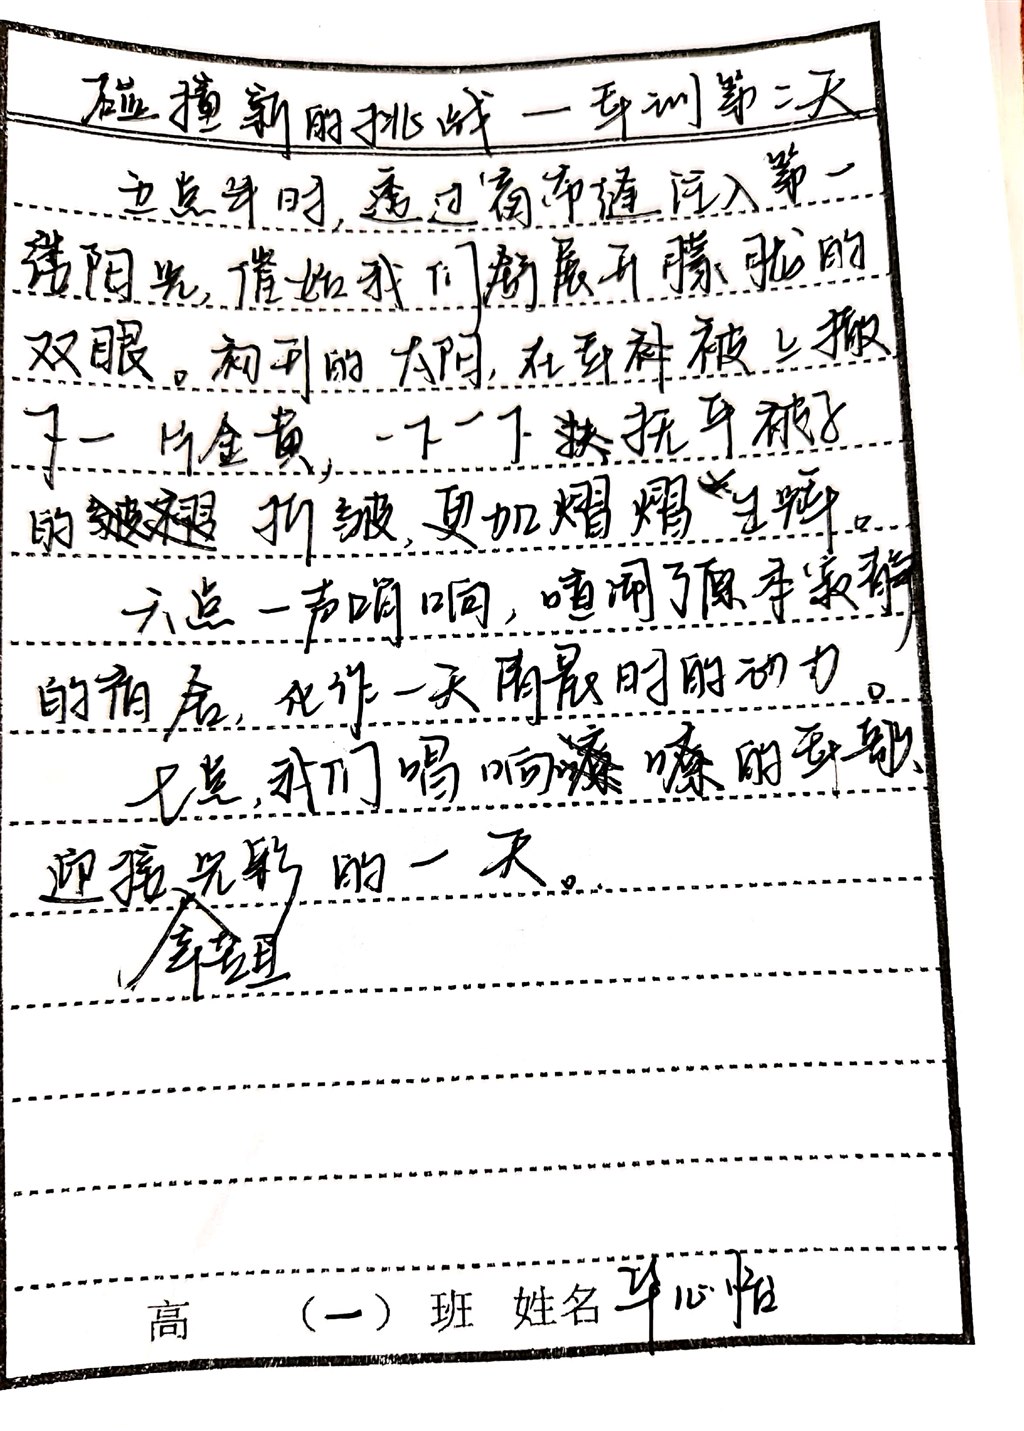 碰撞新的挑战一军训第二天
五点半时,透过窗帘缝注入第一
缕阳光,催始我们舒展开朦胧的
双眼。初升的太阳,在军补被上撒
下一片金黄,一下一下 抚军被子
的 折皱,更加熠熠生辉。
六点一声哨响,喧闹了原本寂静
的宿舍,化作一天清晨时的动力。
七点,我们唱响 嘹的军歌、
迎接光彩的一天。
高 (一) 班 姓名 华心怡